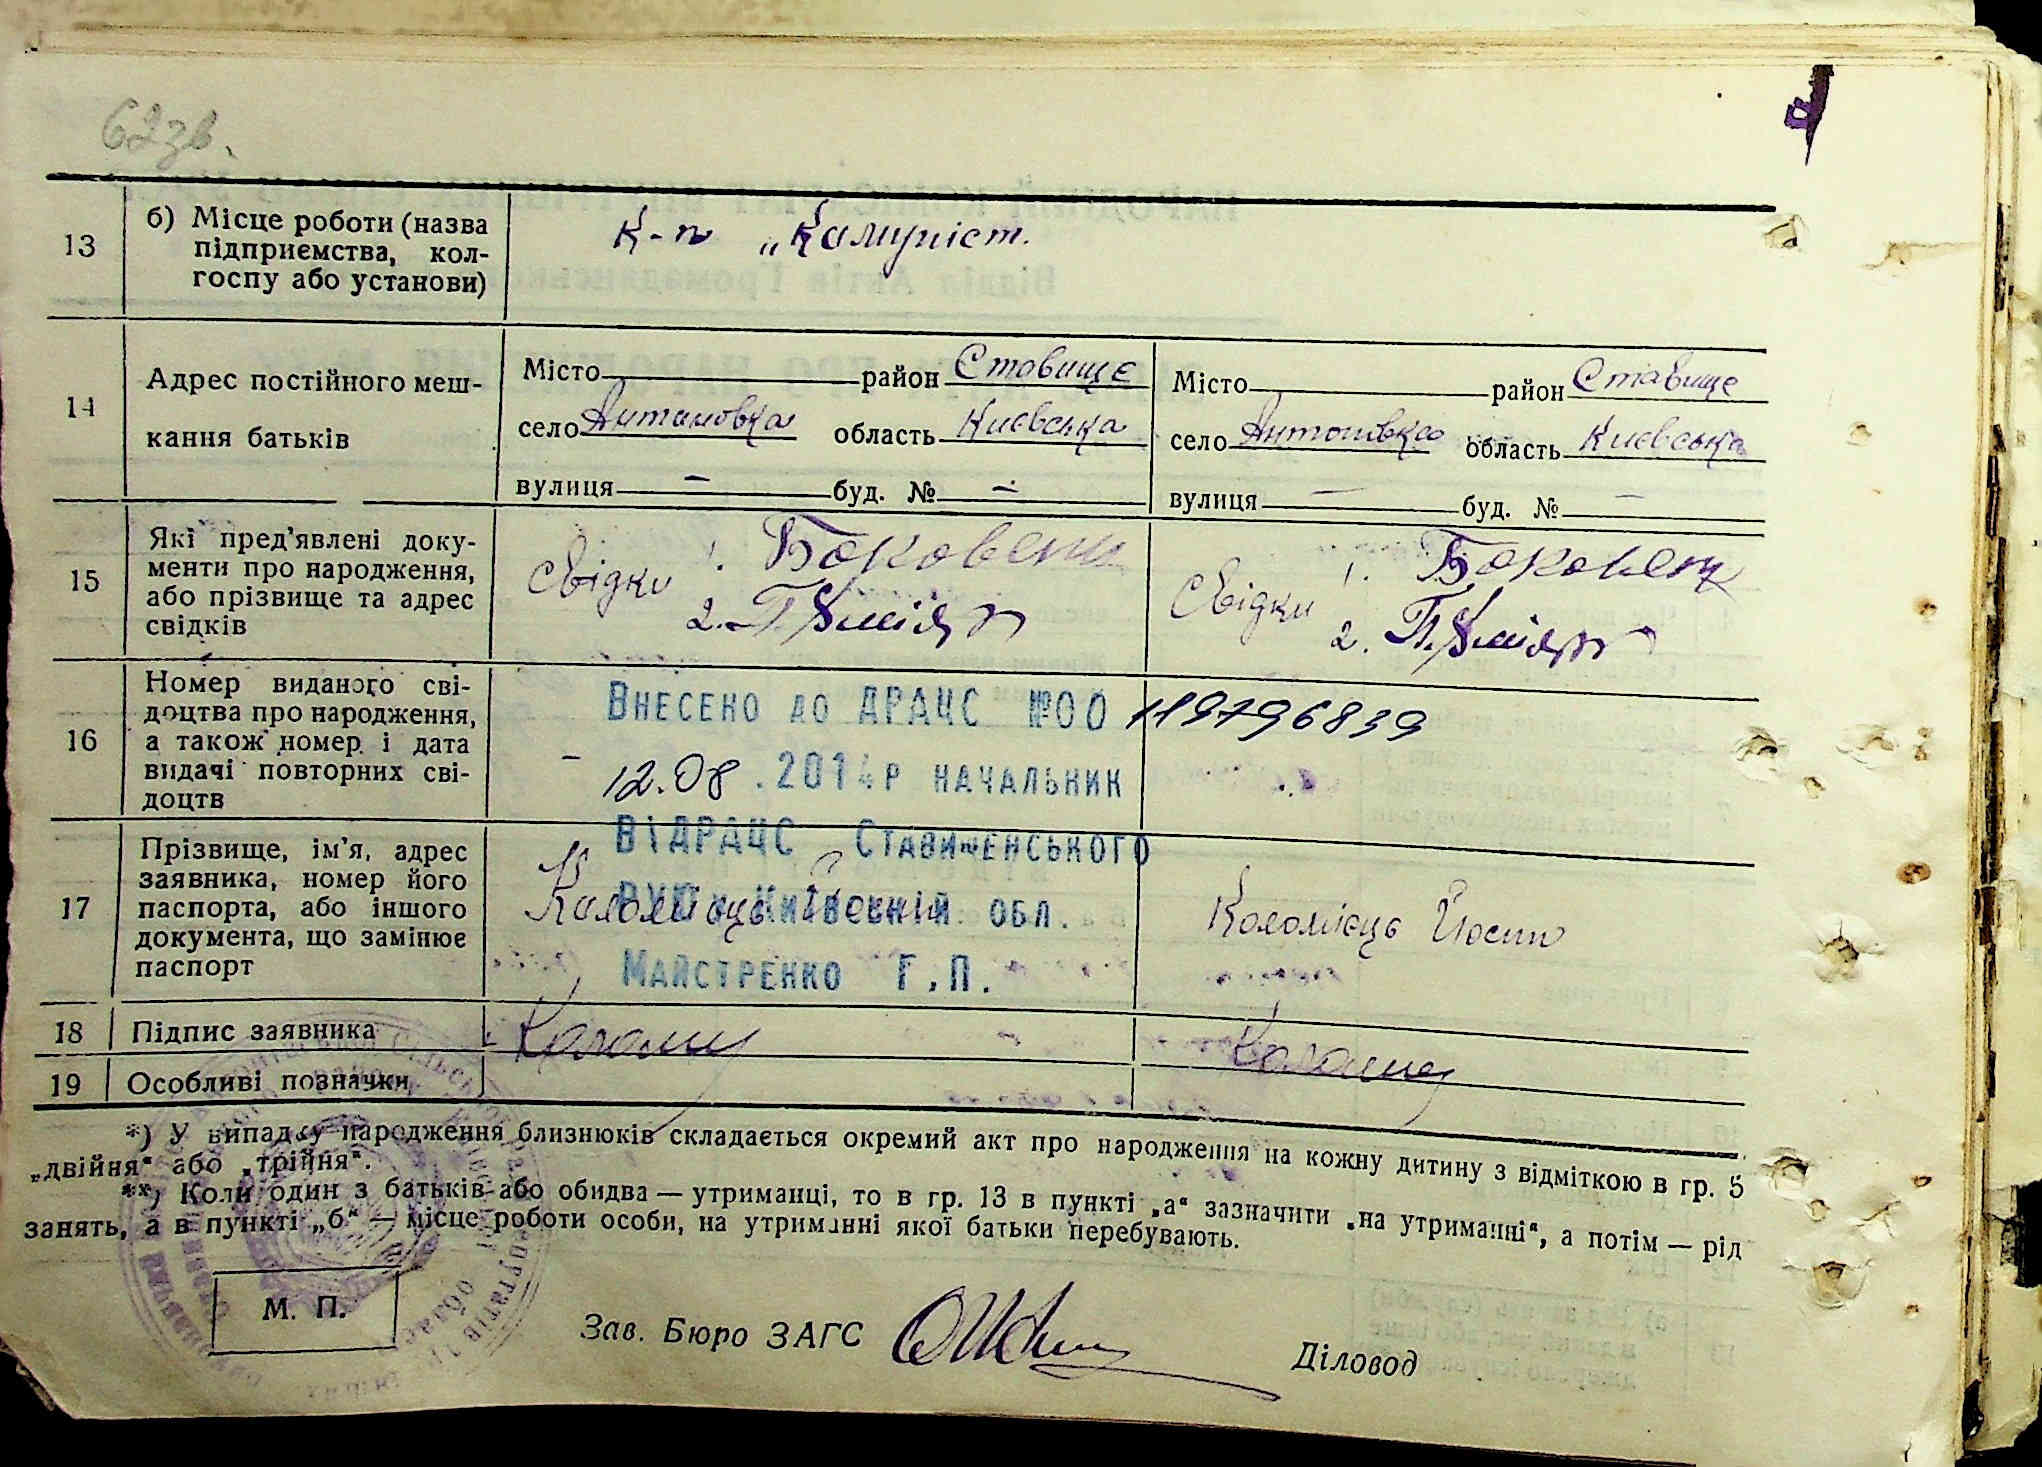 62зв.
13
б) Місце роботи (назва
підприємства, кол-
госпу або установи)
К-п „Комуніст.
14
Адрес постійного меш-
кання батьків
Місто район Ставище
село Антоновка область Київська
вулиця — буд. № —
Місто район Ставище
село Антоновка область Київська
вулиця — буд. № —
15
Які пред'явлені доку-
менти про народження,
або прізвище та адрес
свідків
Свідки 1. Боковець
2.
Свідки 1. Боковець
2.
16
Номер виданого сві-
доцтва про народження,
а також номер і дата
видачі повторних сві-
доцтв
Внесено до ДРАЦС №00 119796839
12.08.2014р начальник
ВІДРАЦС Ставищенського
РУЮ Київській обл.
Майстренко Г.П.
17
Прізвище, ім'я, адрес
заявника, номер його
паспорта, або іншого
документа, що замінює
паспорт
Коломієць Йосип
Коломієць Йосип
18
Підпис заявника
Коломи
Коломиец
19
Особливі позначки
*) У випадку народження близнюків складається окремий акт про народження на кожну дитину з відміткою в гр. 5
„двійня“ або „трійня“.
**) Коли один з батьків або обидва — утриманці, то в гр. 13 в пункті „а“ зазначити „на утриманні“, а потім — рід
занять, а в пункті „б“ — місце роботи особи, на утриманні якої батьки перебувають.
М. П.
Зав. Бюро ЗАГС
Діловод